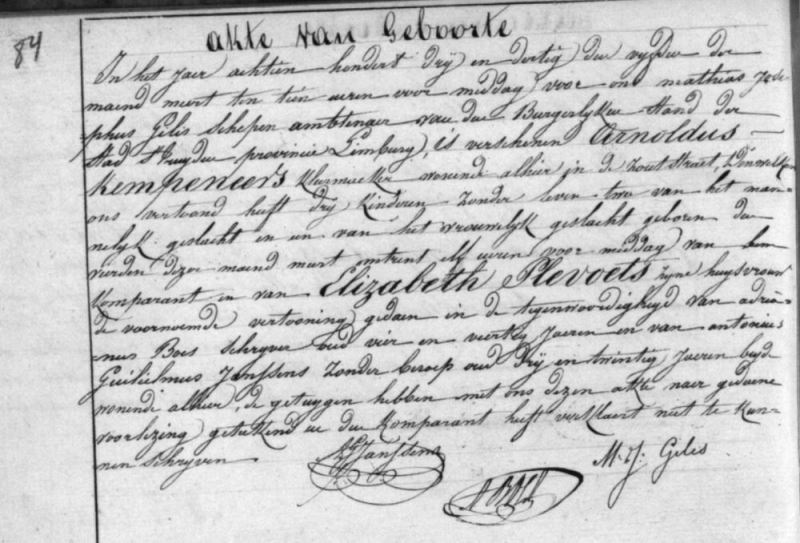 84
akte van Geboorte
In het jaer achtien hondert drÿ en dertig den vyfden der
maend meert ten tien uren voor middag, voor ons mathias Jose-
phus Gelis Schepen ambtenaer van den Burgerlyken stand der
stad St truyden provincie Limburg, is verschenen Arnoldus
Kempeneers kleermaeker wonende alhier in de zoutstraet, Denwelken
ons vertoond heeft drÿ kinderen zonder leven twee van het man-
nelyk geslacht en een van het vrouwelyk geslacht geboren den
vierden dezer maend meert omtrent elf uren voor middag van hem
komparant en van Elizabeth Plevoets zyne huysvrouw
de voornoemde vertooning gedaen in de tegenwoordigheyd van adria-
nus Boes schryver oud vier en veertig Jaeren en van antonius
Guilielmus Janssens zonder beroep oud drÿ en twintig Jaeren beyde
wonende alhier, de getuygen hebben met ons dezen akte naer gedaene
voorlezing getekend en den komparant heeft verklaert niet te kun-
nen schryven
Janssens
M. J. Gelis
A Boes